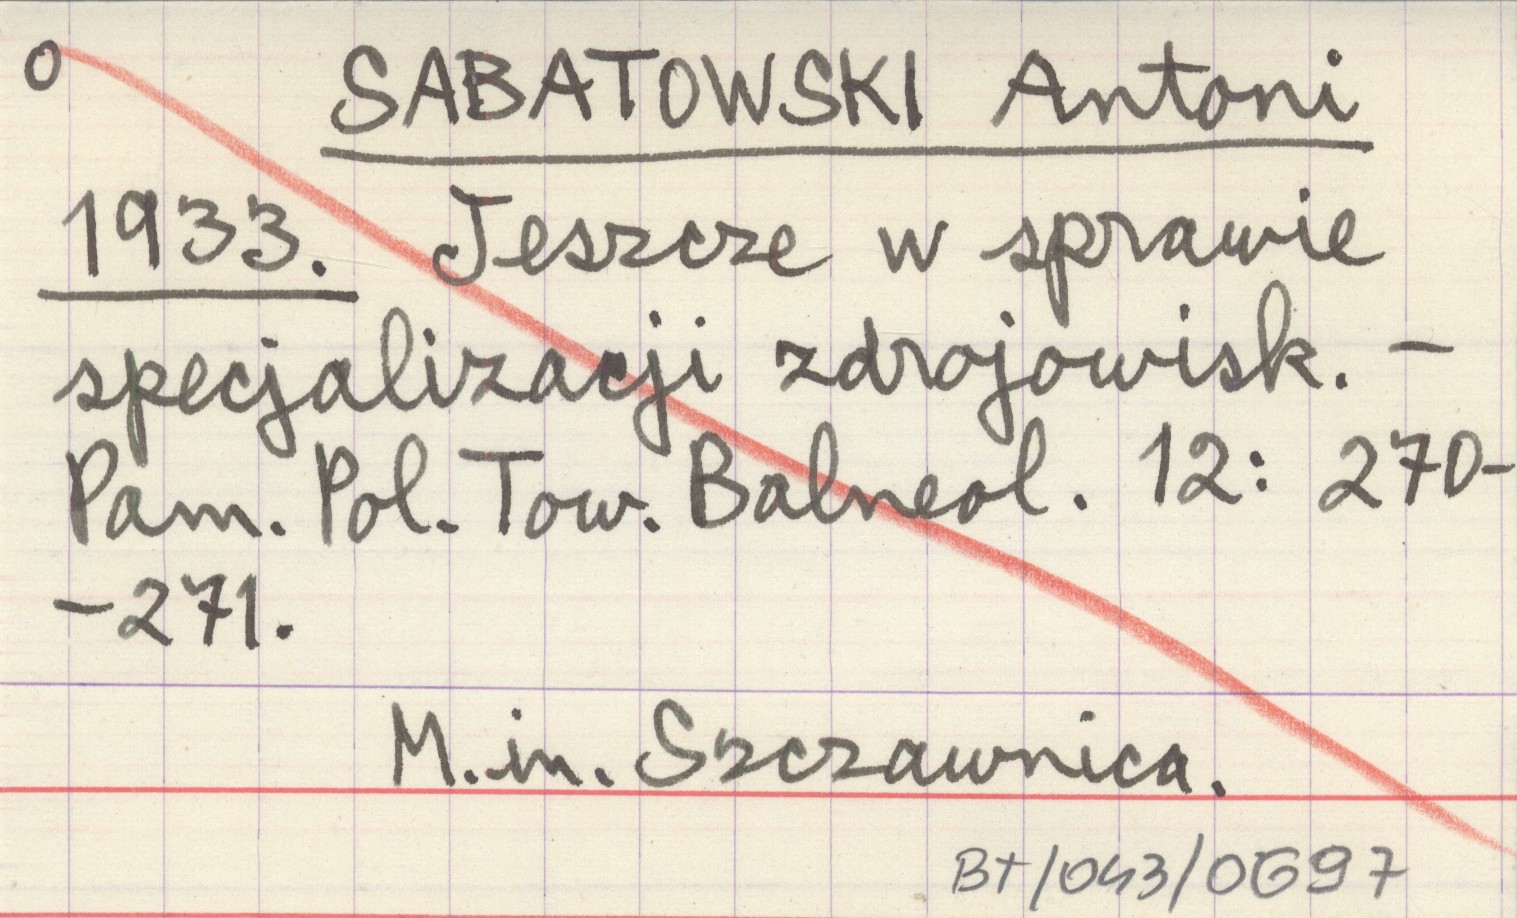 o SABATOWSKI Antoni
1933. Jeszcze w sprawie
specjalizacji zdrojowisk. –
Pam. Pol. Tow. Balneol. 12: 270-
-271.
M. in. Szczawnica.
BT/043/0697